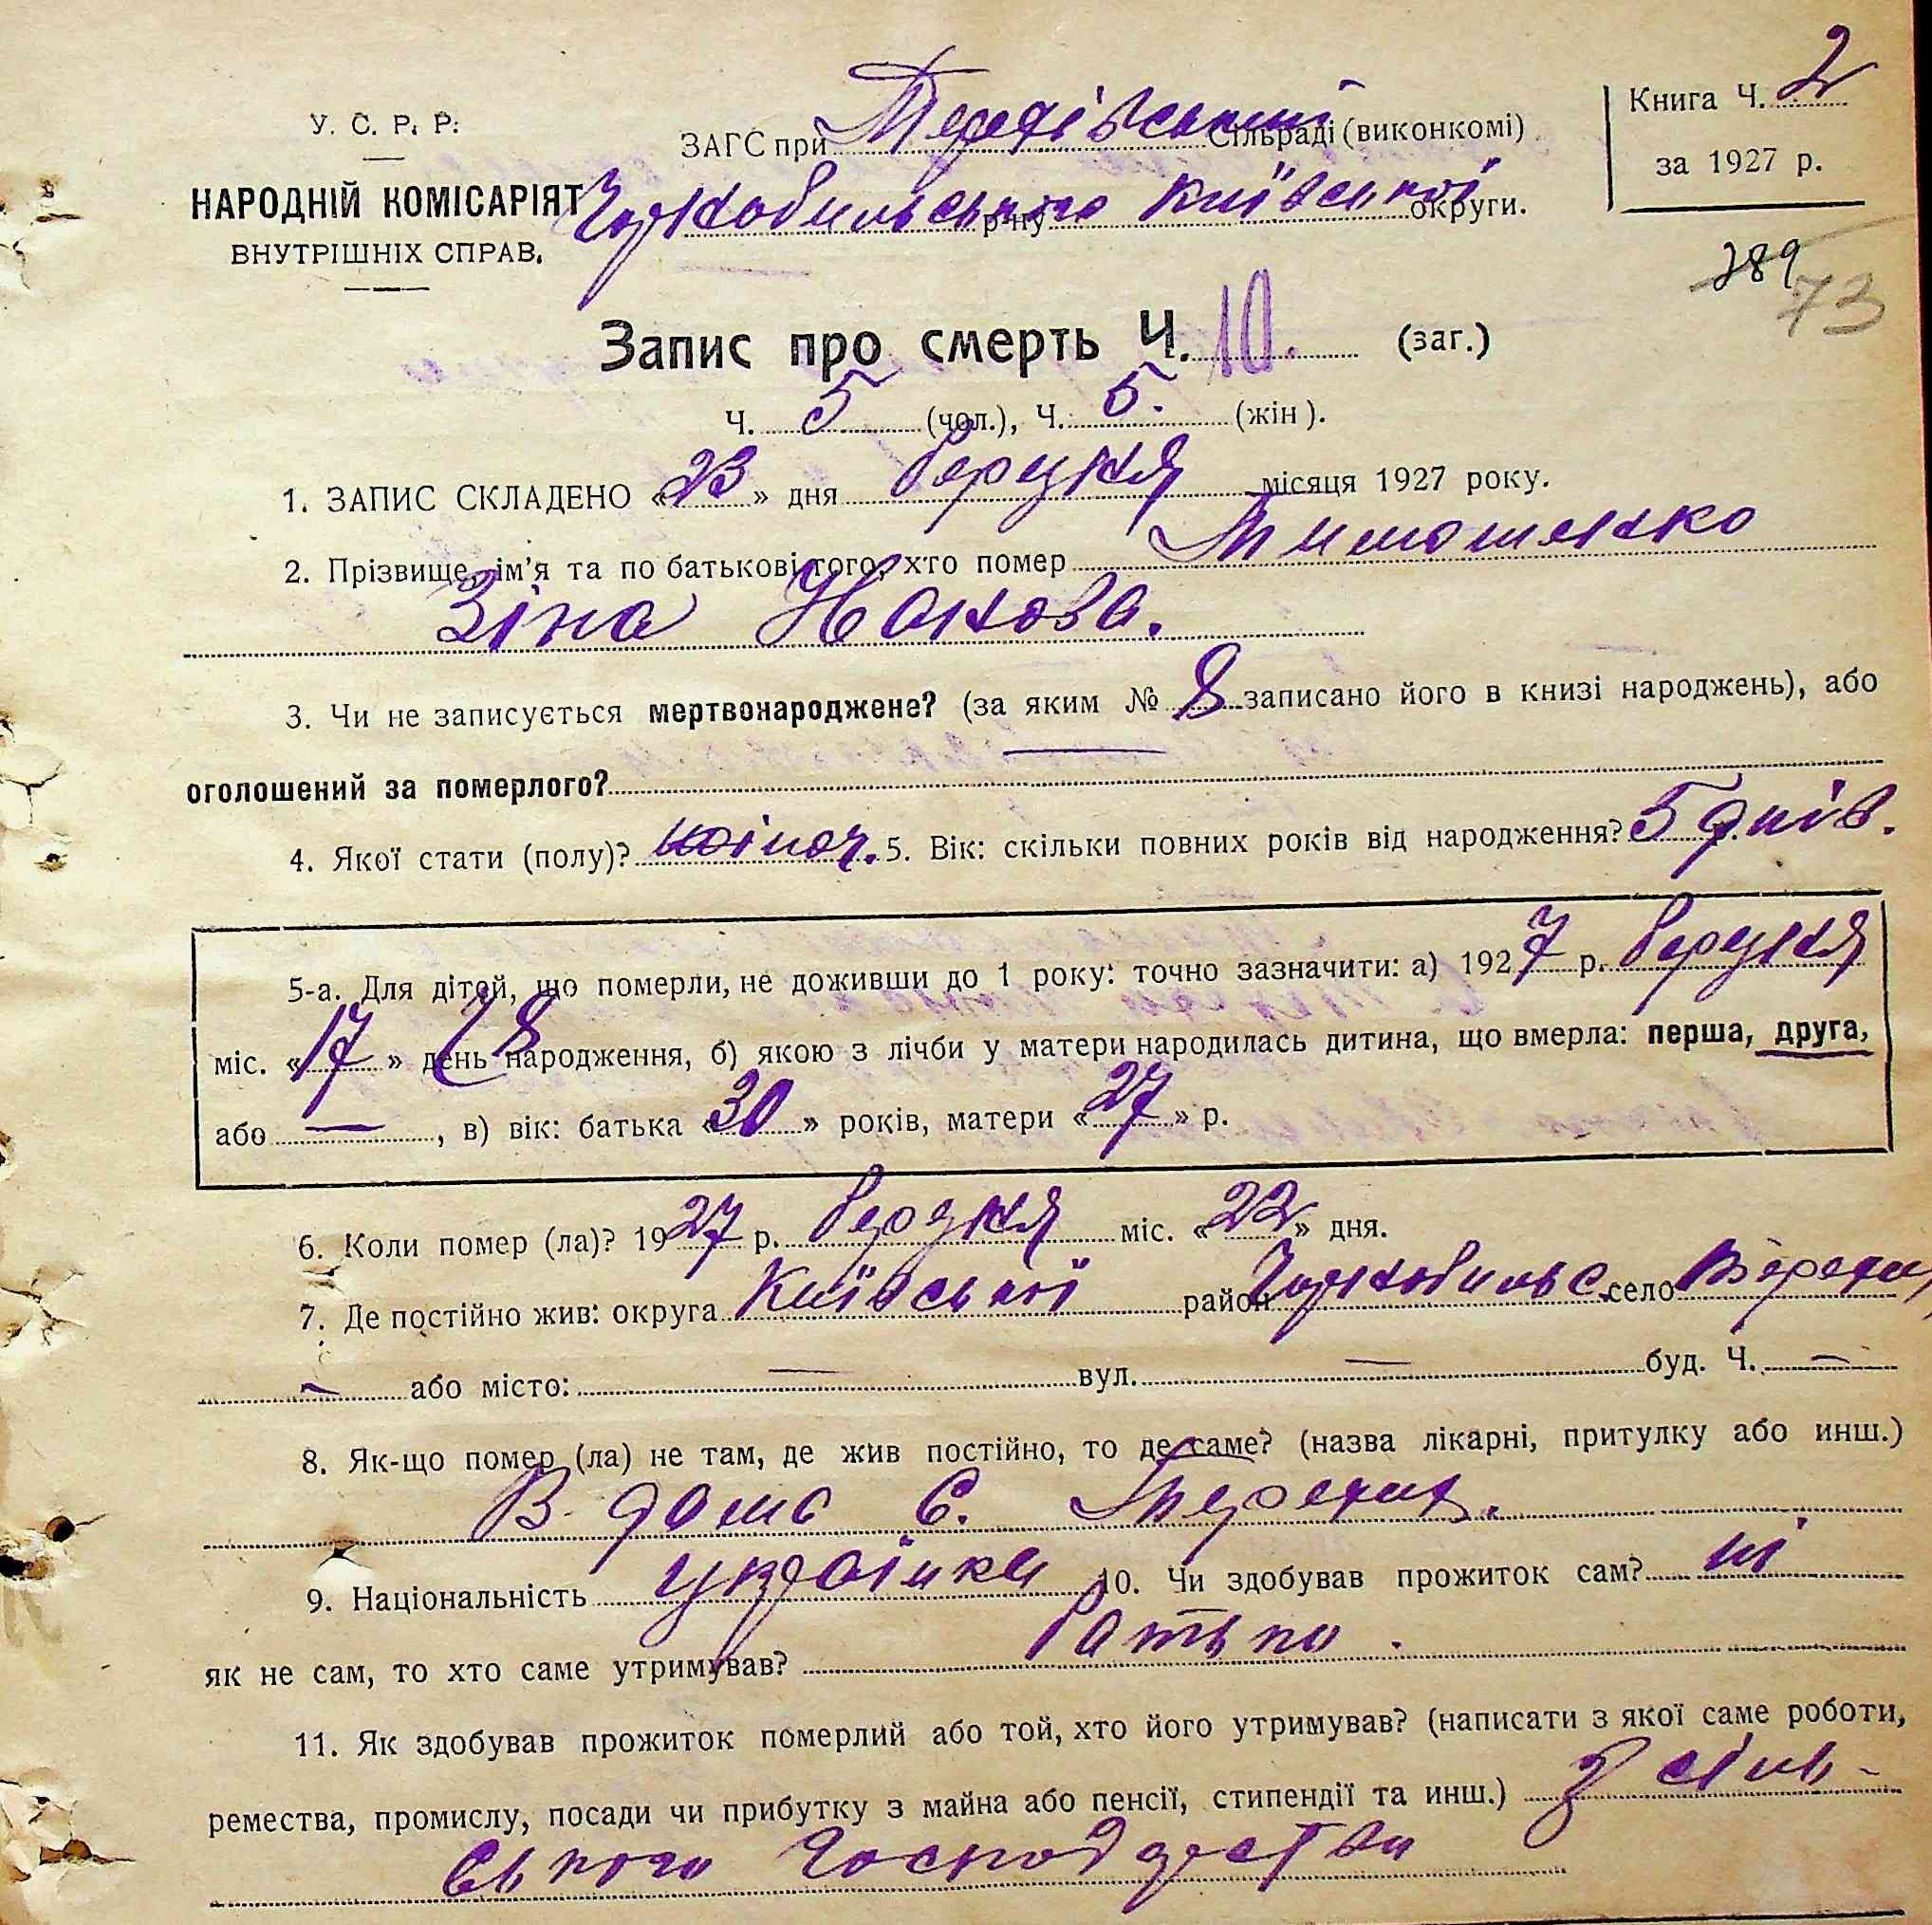 У. С. Р. Р.
НАРОДНІЙ КОМІСАРІЯТ
ВНУТРІШНІХ СПРАВ.
ЗАГС при Сільраді (виконкомі)
Чорнобильського р-ну Київської округи.
Книга Ч. 2
за 1927 р.
289
73
Запис про смерть Ч. 10. (заг.)
Ч. 5 (чол.), Ч. 5. (жін).
1. ЗАПИС СКЛАДЕНО «23» дня березня місяця 1927 року.
2. Прізвище, ім’я та по батькові того, хто помер Тимошенко
Зіна
3. Чи не записується мертвонароджене? (за яким № 8 записано його в книзі народжень), або
оголошений за померлого?
4. Якої стати (полу)? жіноч. 5. Вік: скільки повних років від народження? 5 днів.
5-а. Для дітей, що померли, не доживши до 1 року: точно зазначити: а) 1927 р. березня
міс. «17» день народження, б) якою з лічби у матери народилась дитина, що вмерла: перша, друга,
або —, в) вік: батька «30» років, матери «27» р.
6. Коли помер (ла)? 1927 р. березня міс. «22» дня.
7. Де постійно жив: округа Київської район Чорнобильс. село
— або місто: — вул. — буд. Ч. —
8. Як-що помер (ла) не там, де жив постійно, то де саме? (назва лікарні, притулку або инш.)
В дома с.
9. Національність українка 10. Чи здобував прожиток сам? ні
як не сам, то хто саме утримував? батько.
11. Як здобував прожиток померлий або той, хто його утримував? (написати з якої саме роботи,
ремества, промислу, посади чи прибутку з майна або пенсії, стипендії та инш.) З сіль-
ського господарства